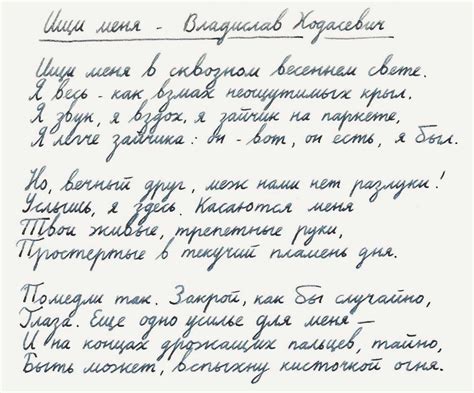 Ищи меня - Владислав Ходасевич
Ищи меня в сквозном весеннем свете.
Я весь - как взмах неощутимых крыл,
Я звук, я вздох, я зайчик на паркете,
Я легче зайчика: он - вот, он есть, я был.
Но, вечный друг, меж нами нет разлуки!
Услышь, я здесь. Касаются меня
Твои живые, трепетные руки,
Простёртые в текучий пламень дня.
Помедли так. Закрой, как бы случайно,
Глаза. Еще одно усилье для меня —
И на концах дрожащих пальцев, тайно,
Быть может, вспыхну кисточкой огня.